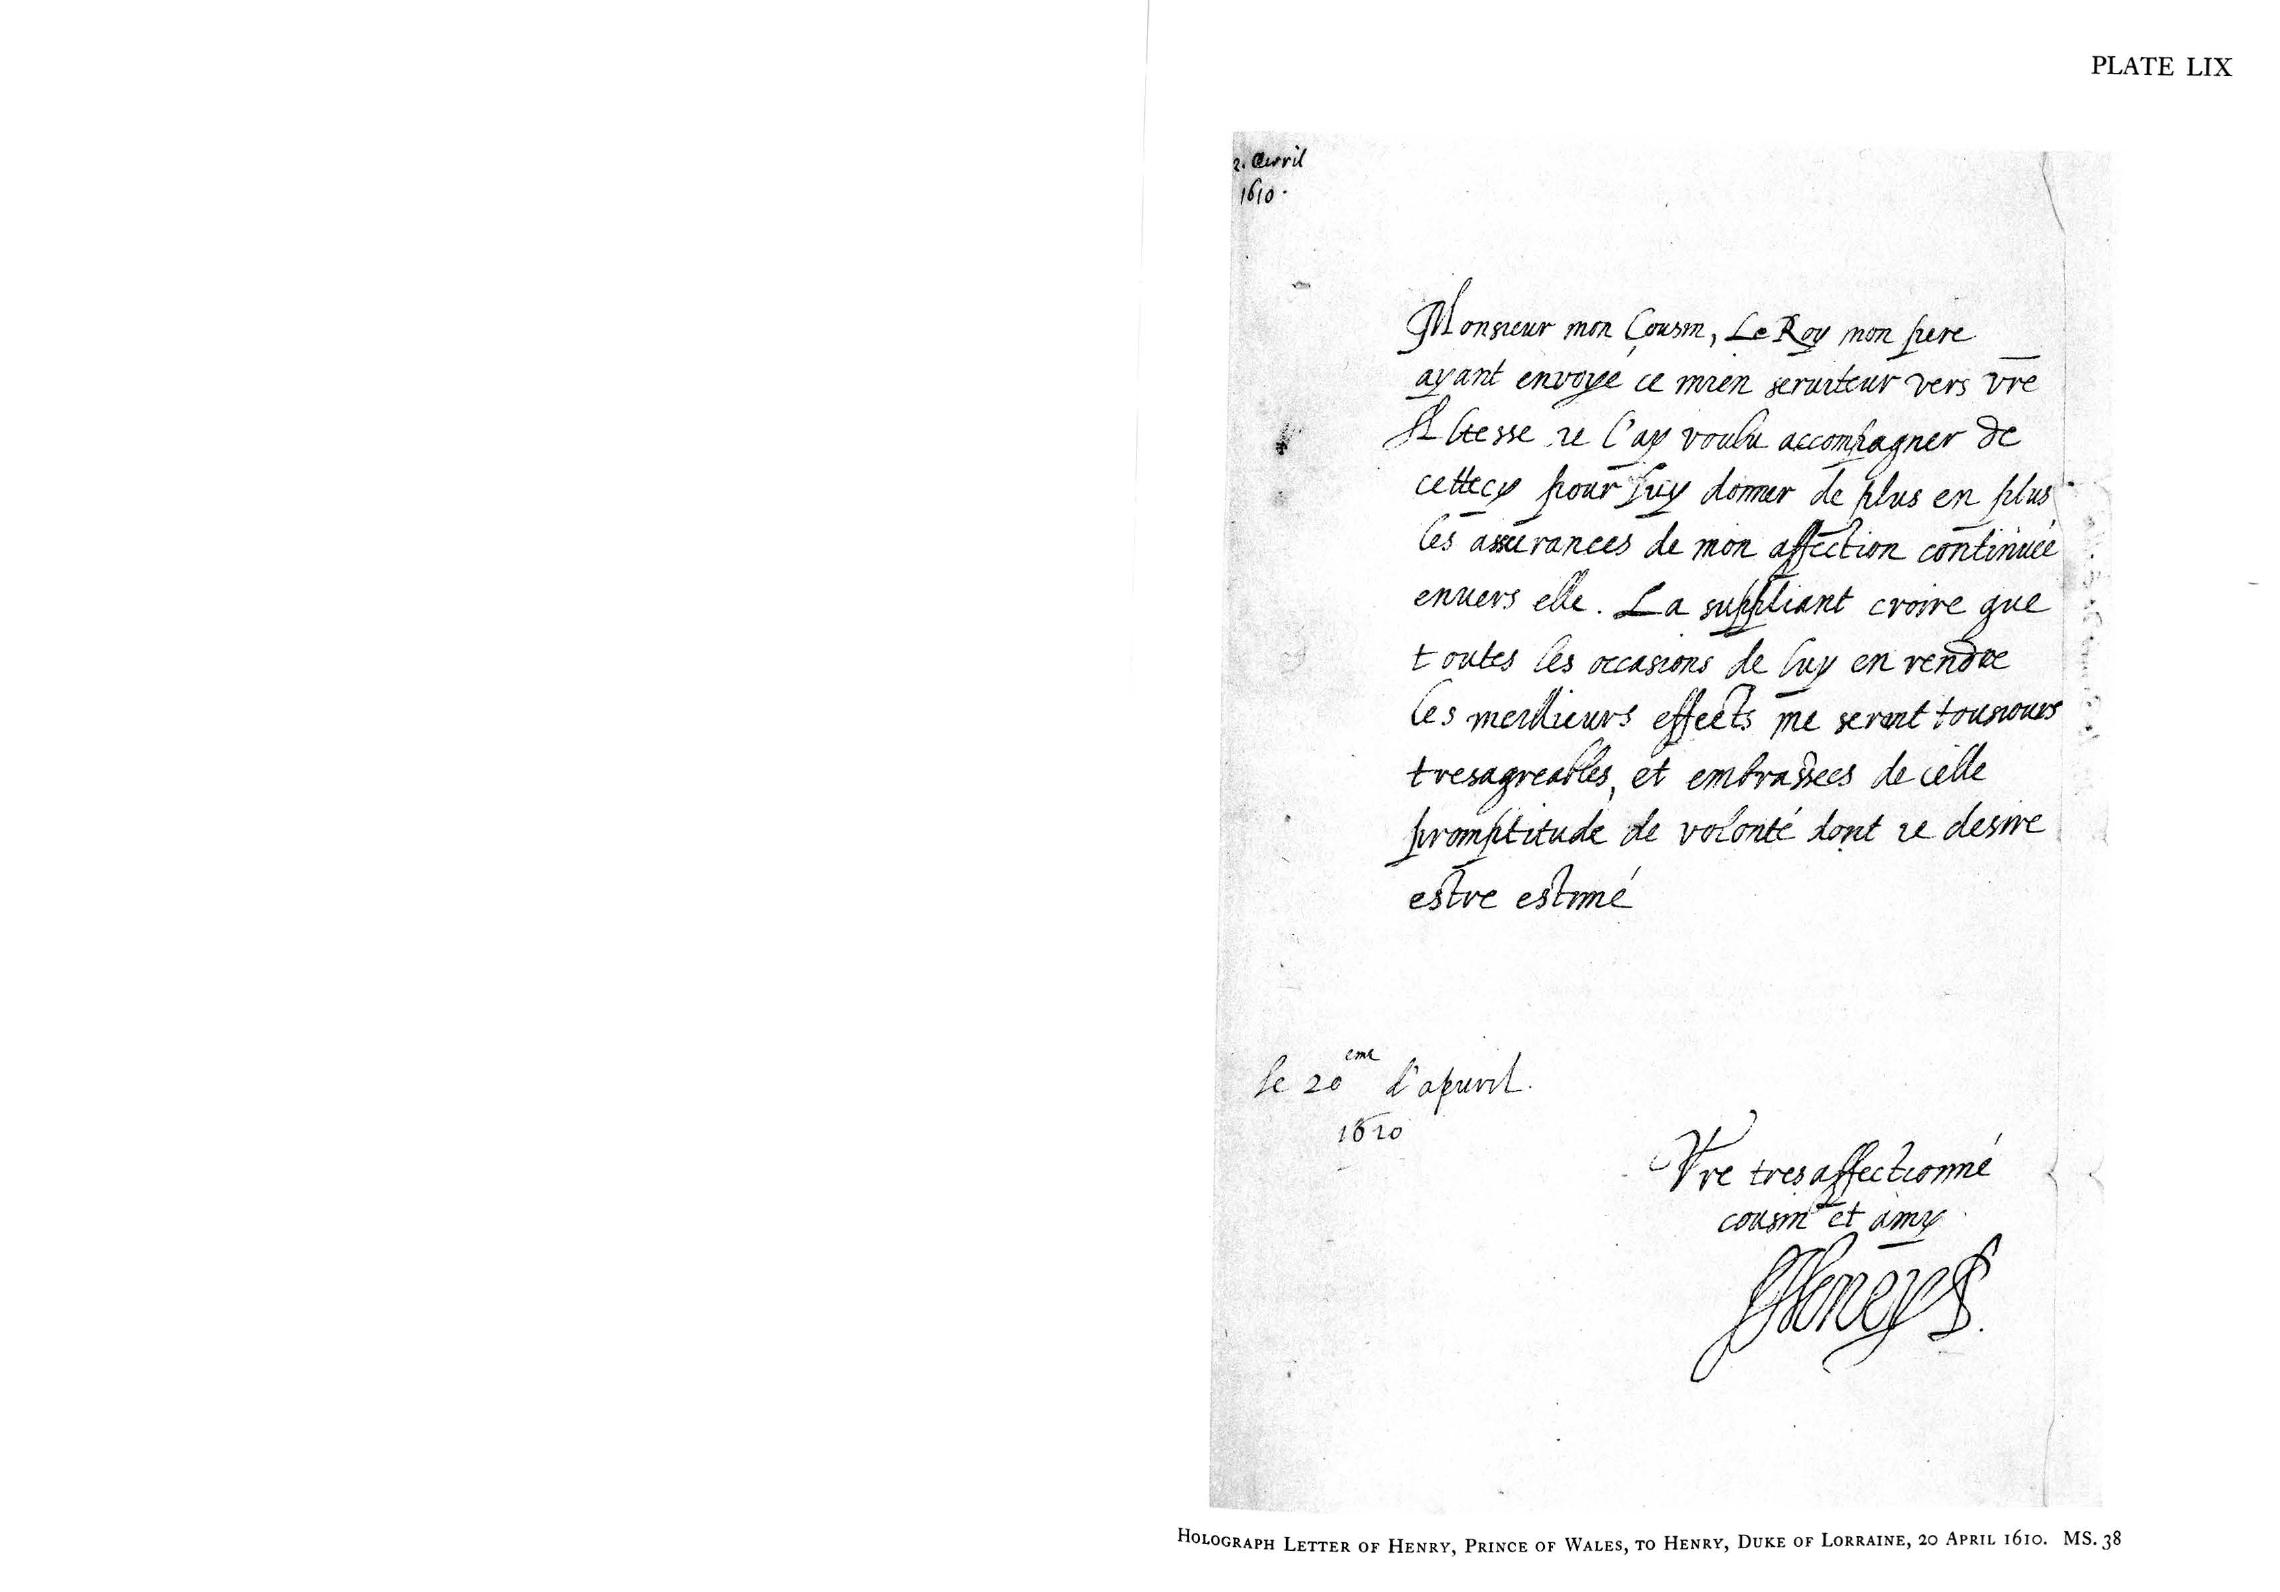 PLATE LIX
2. Avril
1610.
Monsieur mon Cousin, Le Roy mon pere
ayant envoyé ce mien seruiteur vers vre
Altesse ie l'ay voulu accompagner de
cettecy pour luy donner de plus en plus
les asseurances de mon affection continuée
enuers elle. La suppliant croire que
toutes les occasions de luy en rendre
les meillieurs effects me seront tousiours
tresagreables, et embrassees de celle
promptitude de volonté dont ie desire
estre estimé
le 20eme d'apuril.
1610
Vre tresaffectionné
cousin et amy
Henry P.
HOLOGRAPH LETTER OF HENRY, PRINCE OF WALES, TO HENRY, DUKE OF LORRAINE, 20 APRIL 1610. MS. 38